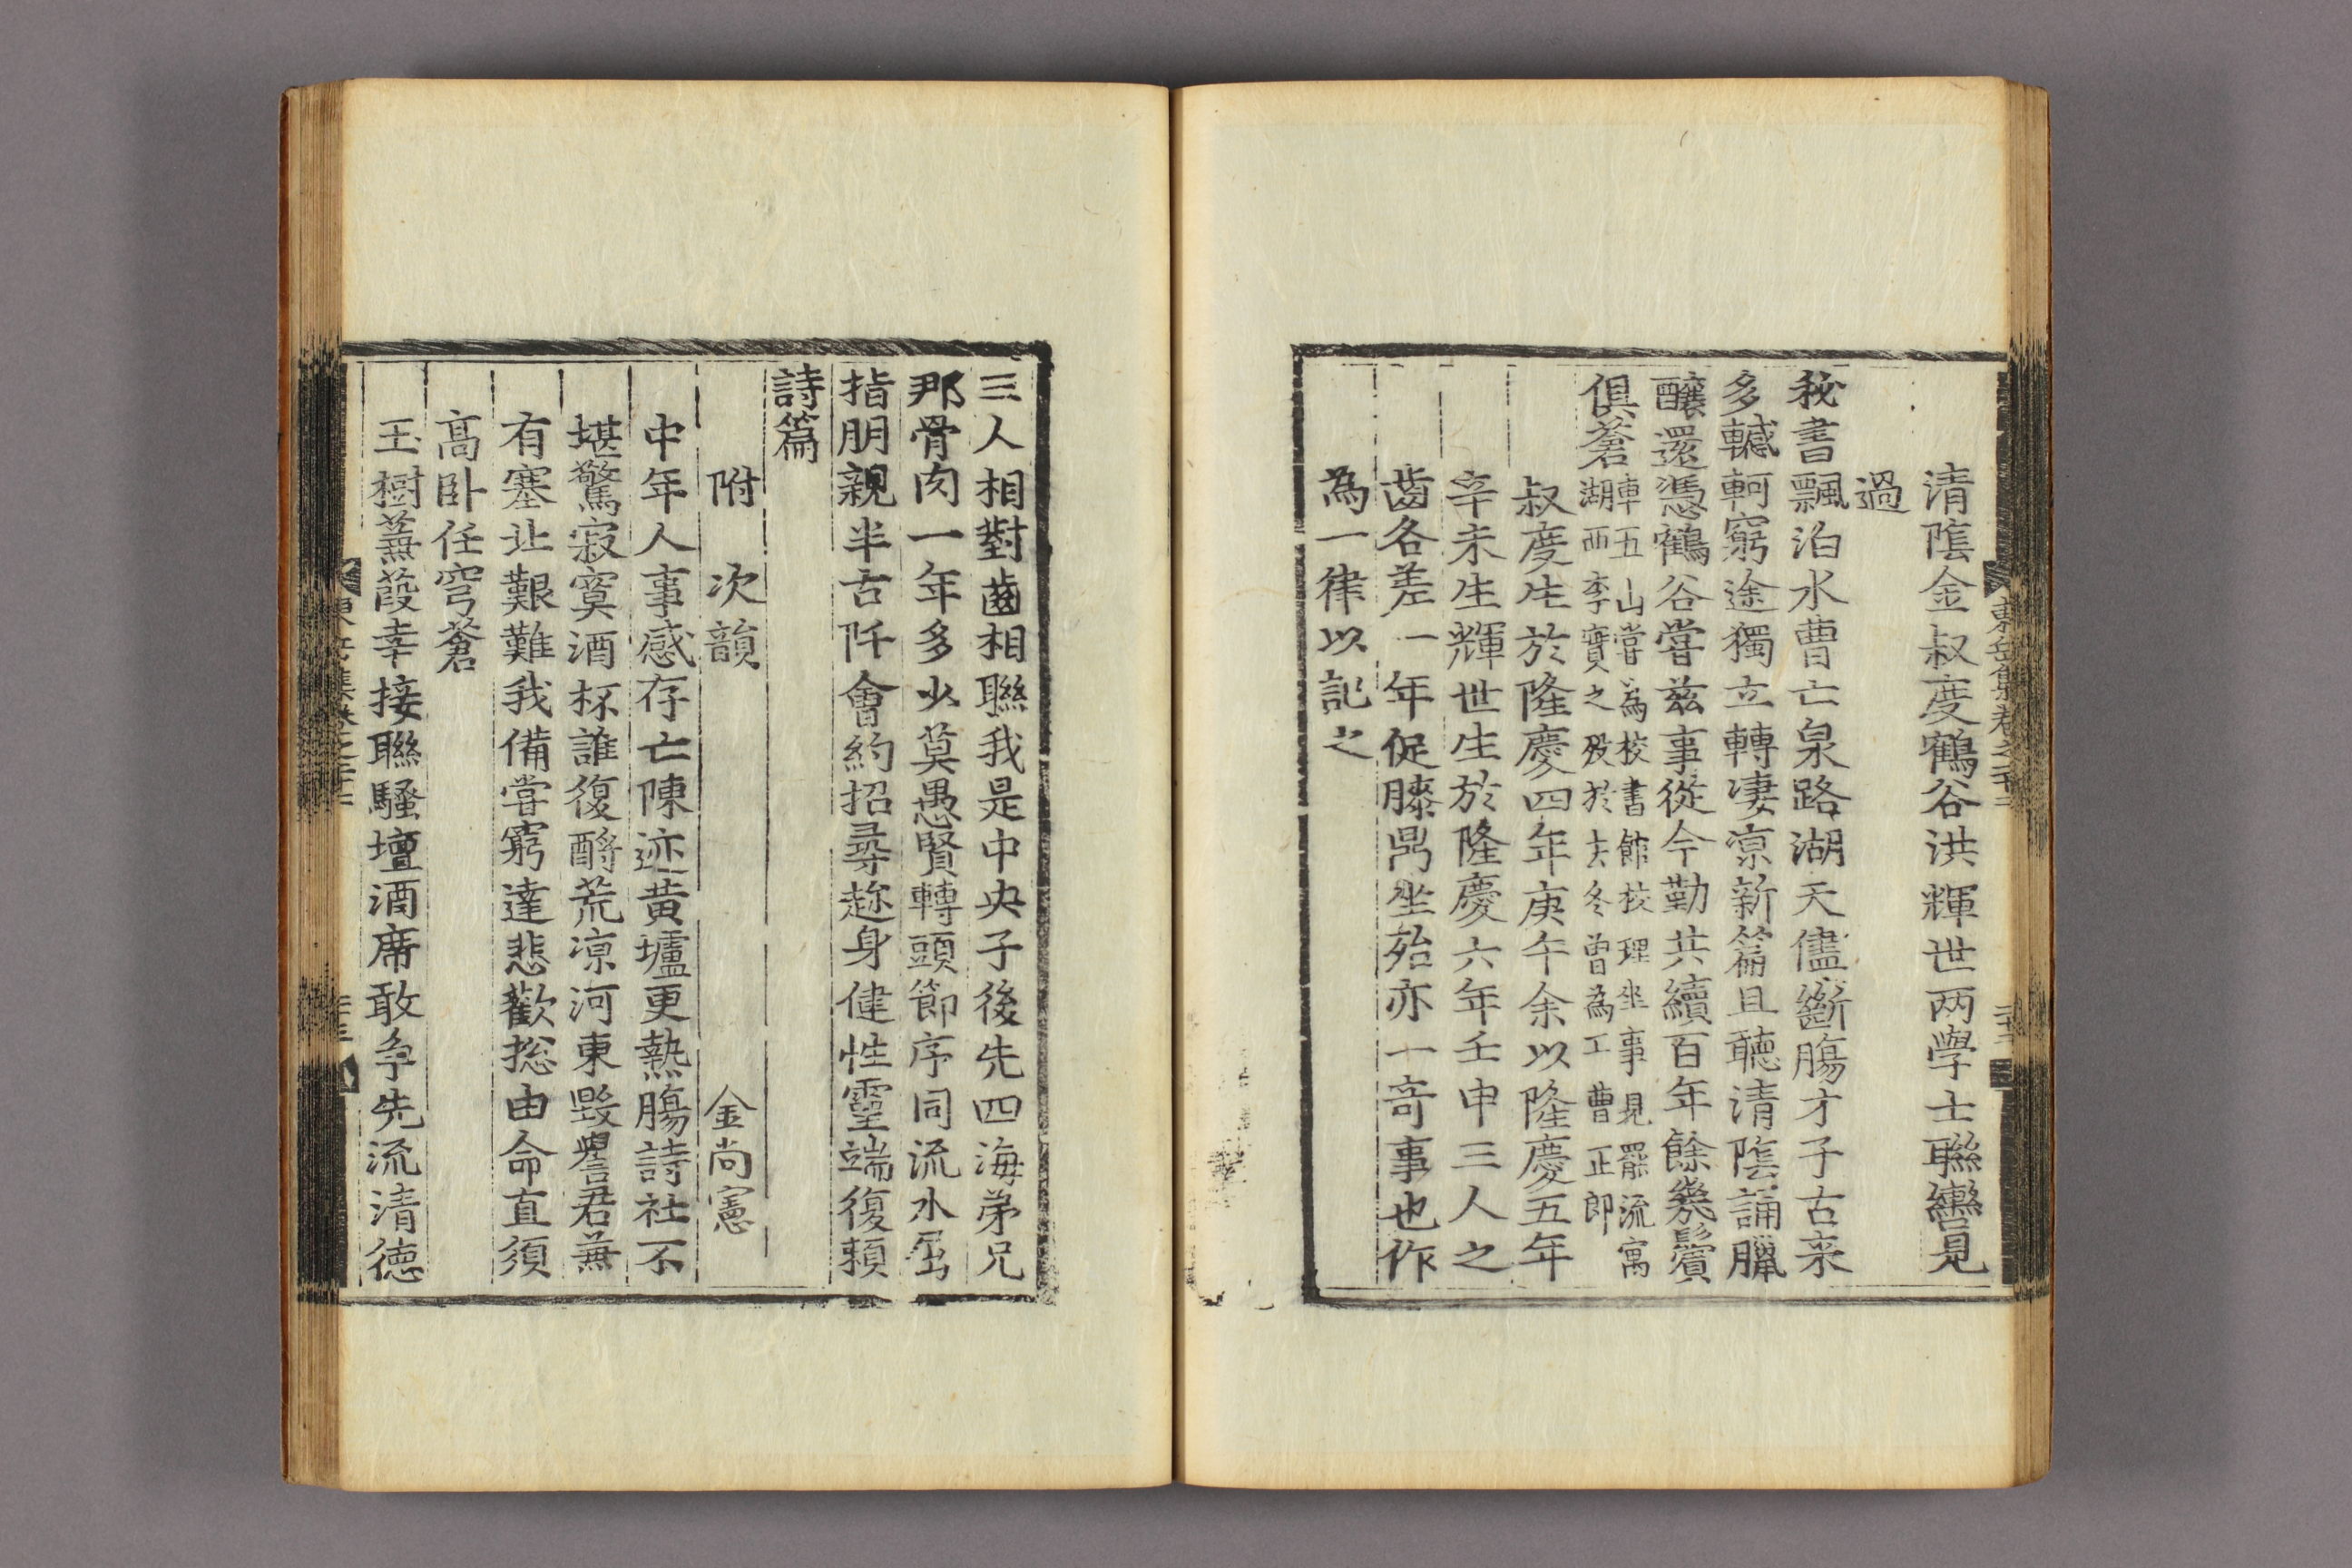 清陰金叔度鶴谷洪輝世两學士聯轡見
過
秘書飄泊水曹亡泉路湖天儘斷膓才子古来
多轗軻窮途獨立轉凄凉新篇且聽清陰誦臘
釀還憑鶴谷嘗兹事從今勤共續百年餘幾鬢
俱蒼
車五山嘗為校書館校理坐事見罷流寓
湖西李實之殁於去冬曾為工曹正郎
叔度生於隆慶四年庚午余以隆慶五年
辛未生輝世生於隆慶六年壬申三人之
齒各差一年促膝鼎坐殆亦一竒事也作
為一律以記之
三人相對齒相聯我是中央子後先四海弟兄
那骨肉一年多少莫愚賢轉頭節序同流水屈
指朋親半古阡會約招尋趂身健性靈端復頼
詩篇
附次韻 金尚憲
中年人事感存亡陳迹黄壚更熱膓詩社不
堪驚寂寞酒杯誰復酹荒凉河東毁譽君無
有塞上艱難我備嘗窮達悲歡揔由命直須
高卧任穹蒼
玉樹蒹葭幸接聯騷壇酒席敢争先流清德